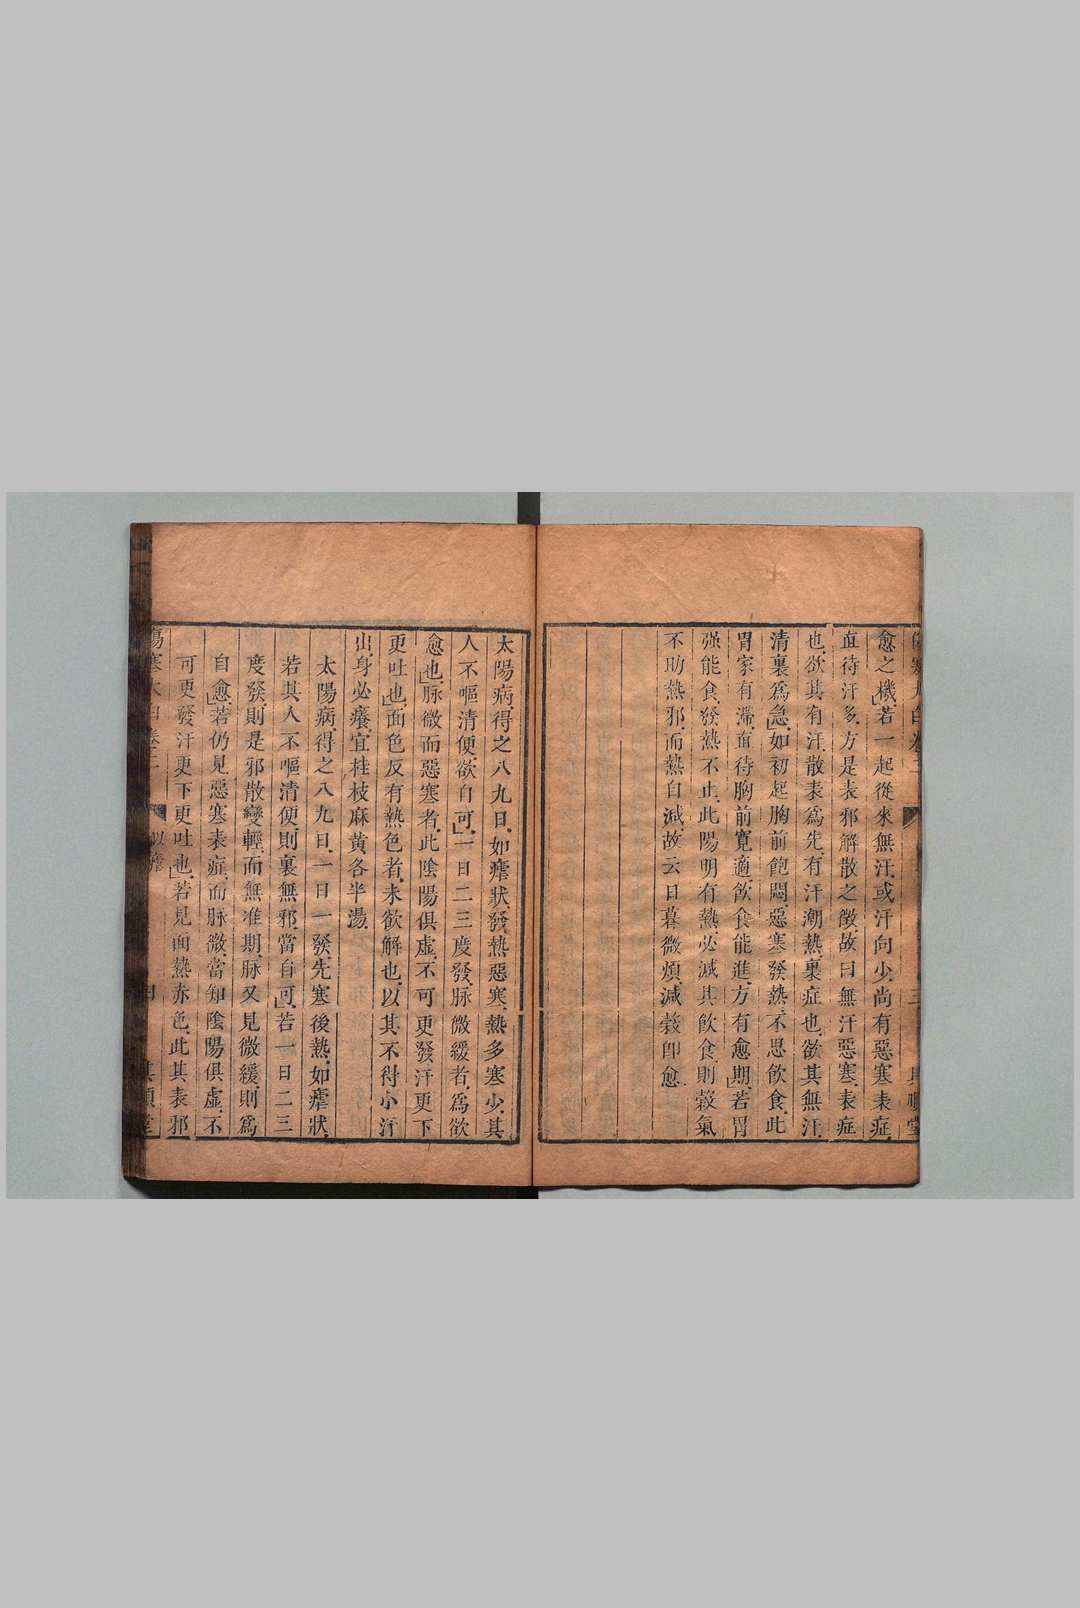 愈之機」若一起從來無汗或汗向少尚有惡寒表症
直待汗多方是表邪解散之徵故曰無汗惡寒表症
也欲其有汗散表爲先有汗潮熱裏症也欲其無汗
清裏爲急」如初起胸前飽悶惡寒發熱不思飲食此
胃家有滯直待胸前寬適飲食能進方有愈期」若胃
强能食發熱不止此陽明有熱必減其飲食則穀氣
不助熱邪而熱自減故云日暮微煩減穀即愈
太陽病得之八九日如瘧狀發熱惡寒熱多寒少其
人不嘔清便欲自可」一日二三度發脉微緩者爲欲
愈也」脉微而惡寒者此陰陽俱虛不可更發汗更下
更吐也」面色反有熱色者未欲解也以其不得小汗
出身必癢宜桂枝麻黄各半湯
太陽病得之八九日一日一發先寒後熱如瘧狀
若其人不嘔清便則裏無邪當自可」若一日二三
度發則是邪散變輕而無准期脉又見微緩則爲
自愈」若仍見惡寒表症而脉微當知陰陽俱虛不
可更發汗更下更吐也」若見面熱赤色此其表邪
傷寒大白卷三 似瘧 其順堂